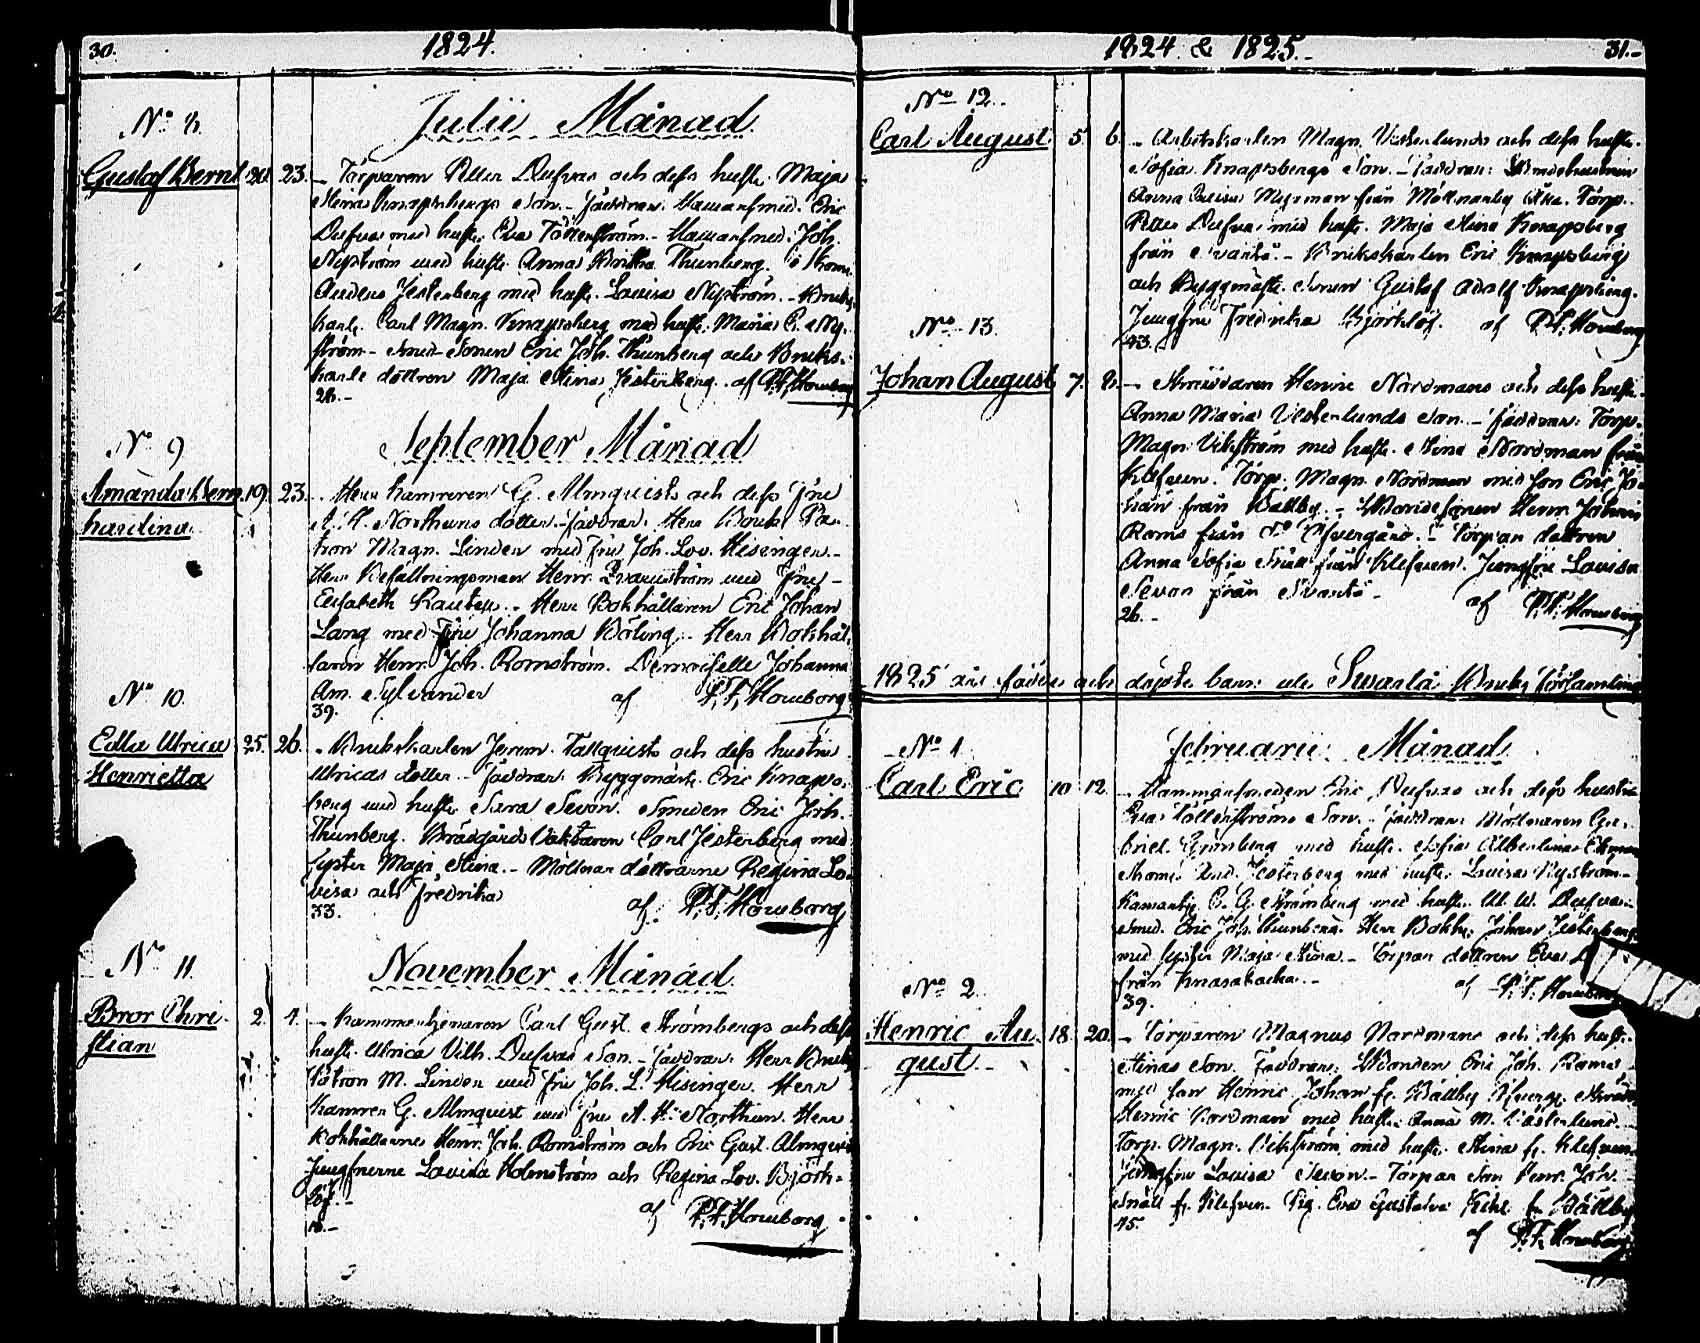 30.
1824.
Julii Månad.
No 8.
Gustaf Bernt 20. 23. Torparen Petter Dufvas och dess hustr. Maja
Stina Knapsbergs Son. Faddrar: Hammarsmed. Eric
Dufva med hustr. Eva Töttenström. Hammarsmed. Joh.
Nyström med hustr. Anna Britha Thunberg.
Anders Jesterberg med hustr. Lovisa Nyström. Bruks
karl. Carl Magn. Knapsberg med hustr. Maria C. Ny-
ström. Smed Sonen Eric Joh. Thunberg och Bruks-
karls dottren Maja Stina Jesterberg. af P.F. Homborg
28.
September Månad
No 9
Amanda Bern 19. 23. Herr Kamreren G. Almquists och dess Fru
hardina
A. H. Northuns dotter. Faddrar: Herr Bruks Pa-
tron Magn. Linder med Fru Joh. Lov. Hisinger.
Herr Befallningsman Henr. med Fru
Elisabeth Herr Bokhållaren Eric Johan
Lang med Fru Johanna Böling. Herr Bokhål-
laren Henr. Joh. Romström. Demoiselle Johanna
Am. Sylvander af P.F. Homborg
39.
No 10.
Edla Ulrica 25. 26. Brukskarlen Jerem. Tallquists och dess hustru
Henrietta
Ulricas dotter. Faddrar Byggmäst. Eric Knaps-
berg med hustr. Sara Sevon. Smeden Eric Joh.
Thunberg. Carl Jesterberg med
syster Maja Stina. Möllnar döttrarne Regina Lo-
visa och Fredrika
33. af P.F. Homborg
November Månad.
No 11.
Bror Chri- 2. 4. Kammarskrivaren Carl Gust. Strömbergs och dess
stian
hustr. Ulrica Vilh. Dufvas Son. Faddrar: Herr Bruks
Patron M. Linder med Fru Joh. L. Hisinger. Herr
Kamrer G. Almquist med Fru A. H. Northun. Herr
Bokhållarne Henr. Joh. Romström och Eric Gust. Almquist
Jungfrurne Lovisa Holmström och Regina Lov. Björk-
löf.
af P.F. Homborg
1824 & 1825.
31.
No 12.
Carl August 5. 6. Arbetskarlen Magn. Vesterlunds och dess hustr.
Sofia Knapsbergs Son. Faddrar:
Anna Lovisa från Torp.
Petter Dufva med hustr. Maja Stina Knapsberg
från Svartå. Brukskarlen Eric Knapsberg
och Byggmäst. Sonen Gustaf Adolf Knapsberg.
Jungfru Fredrika Björklöf. af P.F. Homborg
43.
No 13.
Johan August 7. 8. Henric Nordmans och dess hustr.
Anna Maria Vesterlunds Son. Faddrar: Torp.
Magn. Vikström med hustr. Stina Nordman från
Klefven. Torp. Magn. Nordman med Son Eric Jo-
han från Bällby. Bonde Sonen Henr. Johan
Roms från
Anna Sofia Snäll från Klefven. Jungfru Lovisa
Sevon från Svartå.
26. af P.F. Homborg
1825 års födde och döpte barn uti Svartå Bruks församling
Februarii Månad
No 1.
Carl Eric 10 12. Hammarsmeden Eric Dufvas och dess hustru
Eva Töttenströms Son. Faddrar: Möllnaren Ga-
briel Grönberg med hustr. Sofia Albertina Ekman
And. Jesterberg med hustr. Lovisa Nyström.
C. G. Strömberg med hustr. U. W. Dufva.
Smed. Eric Joh. Thunberg. Herr Bokh. Johan Jesterberg
med syster Maja Stina. Torpar dottren Eva
från Knasabacka.
39. af P.F. Homborg
No 2.
Henric Au- 18. 20. Torparen Magnus Nordmans och dess hustr.
gust.
Stinas Son. Faddrar: Bonden Eric Joh. Roms
med son Henric Johan fr. Bällby
Henric Nordman med hustr. Anna M. Vesterlund.
Torp. Magn. Vikström med hustr. Stina fr. Klefven.
Jungfru Lovisa Sevon. Torpar Son Henr. Joh.
Snäll fr. Klefven. Pig. Eva Gustafva fr. Bällby
45.
af P.F. Homborg